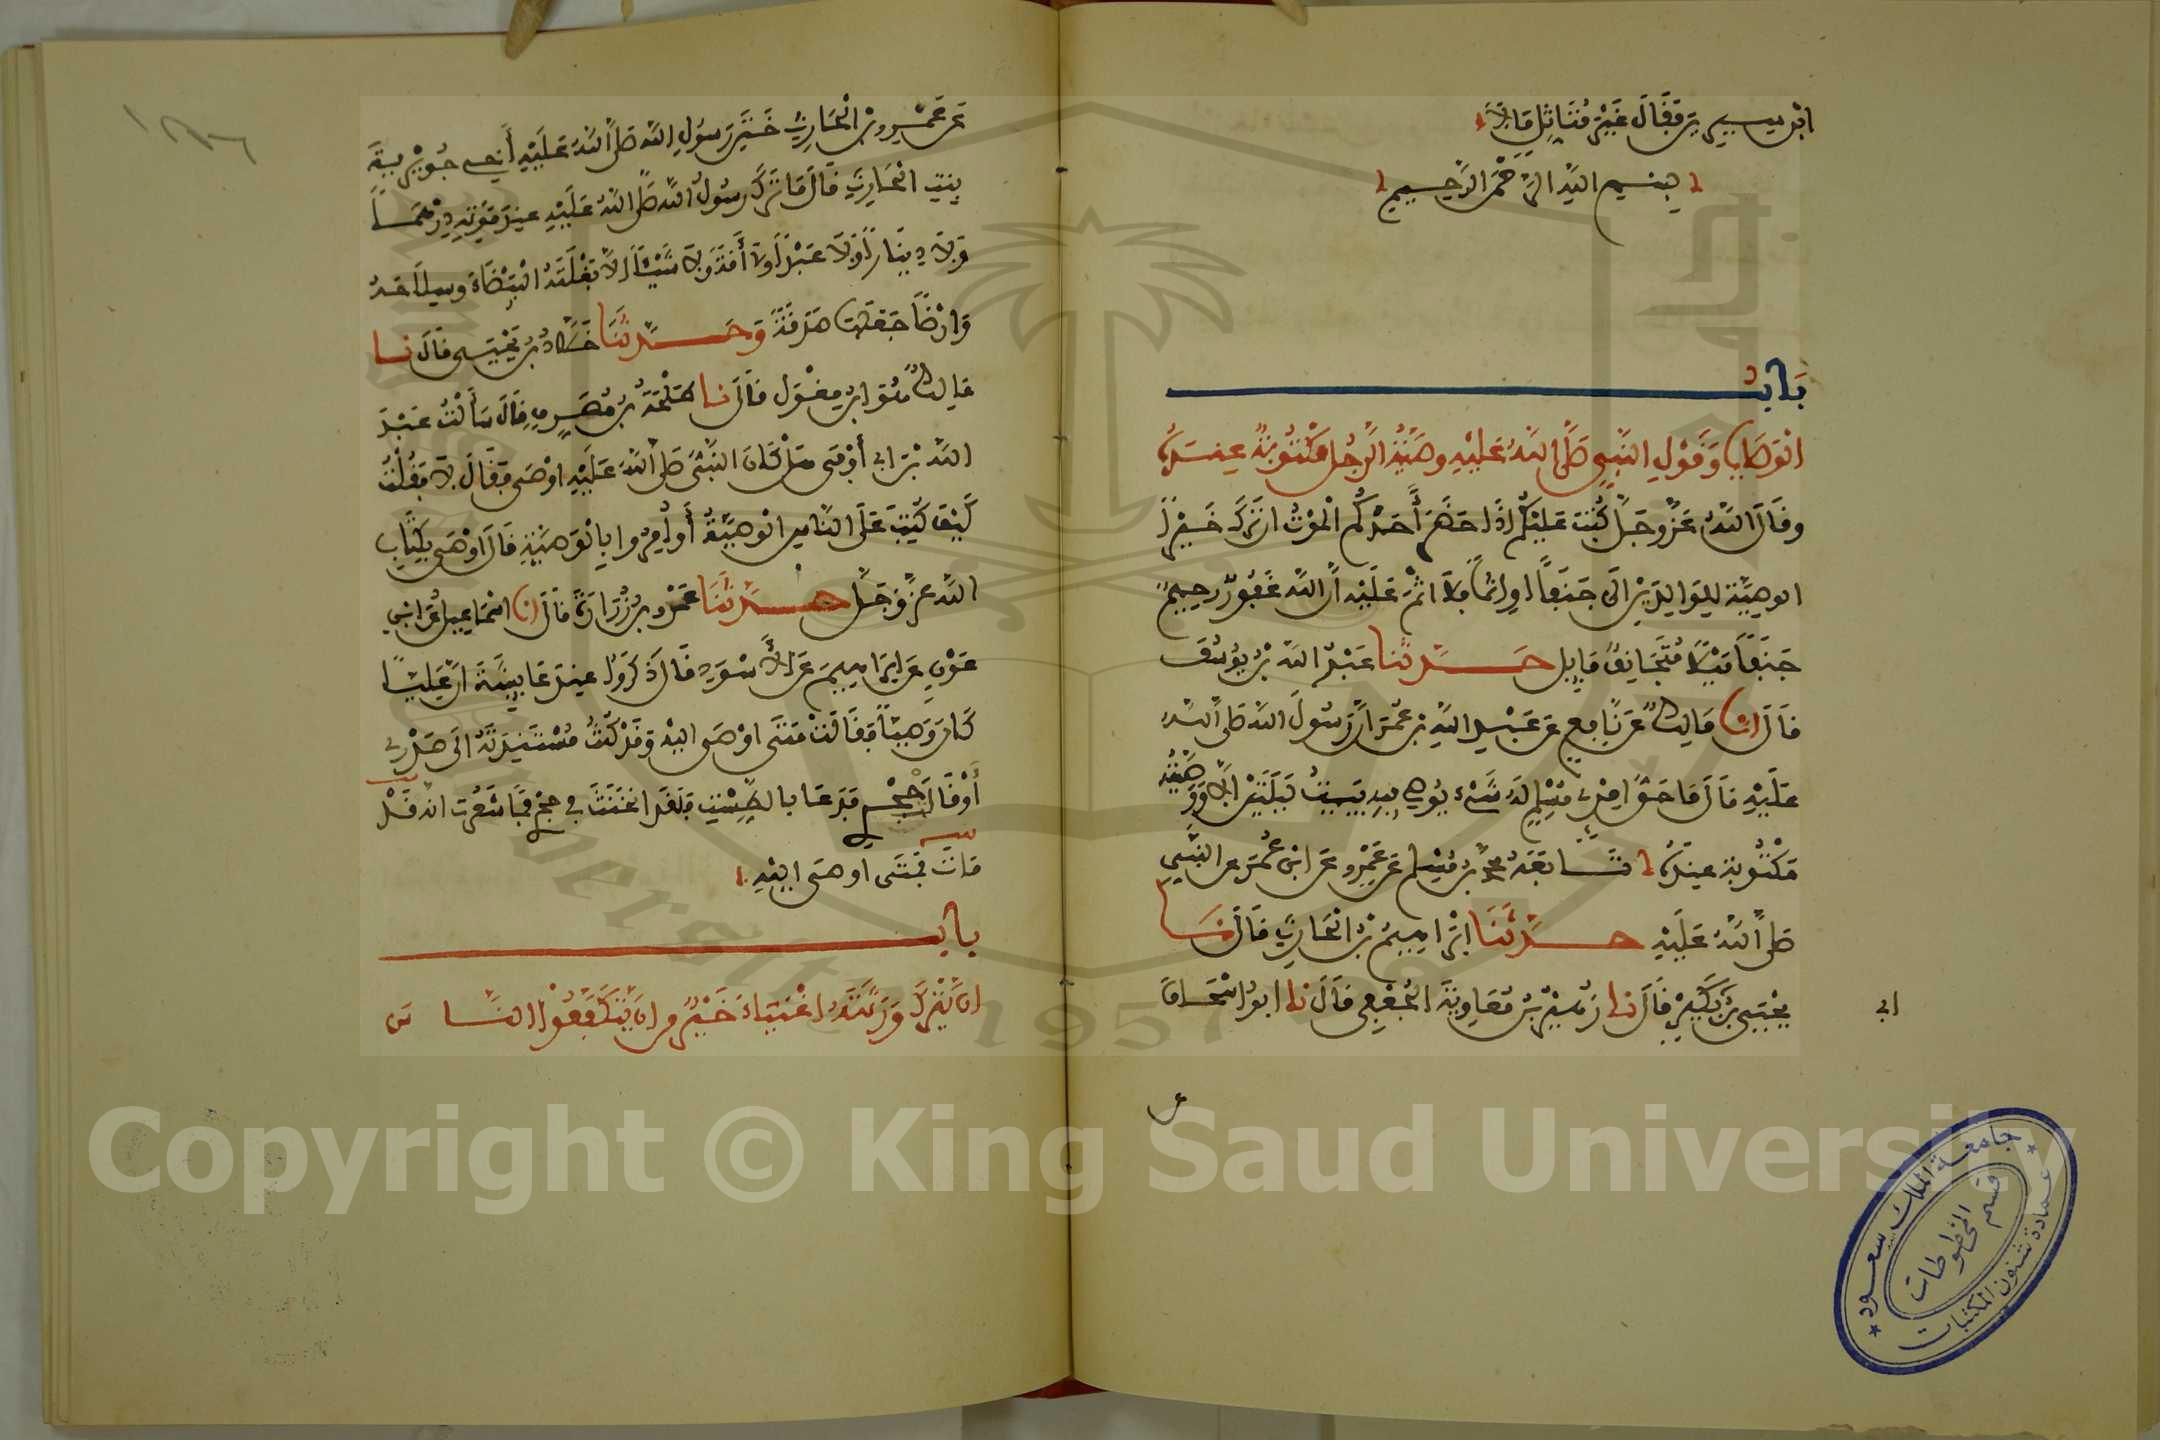 ابن سيرين فقال غير متاثل مالا
بسم الله الرحمن الرحيم
باب
الوصايا وقول النبي صلى الله عليه وصية الرجل مكتوبة عنده
وقال الله عز وجل كتب عليكم اذا حضر أحدكم الموت ان ترك خيرا
الوصية للوالدين الى جنفا او اثما فلا اثم عليه ان الله غفور رحيم
جنفا ميلا متجانف مايل حدثنا عبد الله بن يوسف
قال انا مالك عن نافع عن عبد الله بن عمر أن رسول الله صلى الله
عليه قال ما حق امرئ مسلم له شيء يوصي فيه يبيت ليلتين الا ووصيته
مكتوبة عنده تابعه محمد بن مسلم عن عمرو عن ابن عمر عن النبي
صلى الله عليه حدثنا ابراهيم بن الحارث قال نا
يحيى بن بكير قال نا زهير بن معاوية الجعفي قال نا ابو اسحاق
عن عمرو بن الحارث ختن رسول الله صلى الله عليه أخي جويرية
بنت الحارث قال ما ترك رسول الله صلى الله عليه عند موته درهما
ولا دينارا ولا عبدا ولا أمة ولا شيئا الا بغلته البيضاء وسلاحه
وارضا جعلها صدقة وحدثنا خلاد بن يحيى قال نا
مالك هو ابن مغول قال نا طلحة بن مصرف قال سألت عبد
الله بن ابي أوفى هل كان النبي صلى الله عليه اوصى فقال لا فقلت
كيف كتب على الناس الوصية أو أمروا بالوصية قال اوصى بكتاب
الله عز وجل حدثنا عمرو بن زرارة قال انا اسماعيل عن ابن
عون عن ابراهيم عن الأسود قال ذكروا عند عايشة ان عليا
كان وصيا فقالت متى اوصى اليه وقد كنت مسندته الى صدري
أو قال حجري فدعا بالطست فلقد انخنث في حجري فما شعرت انه قد
مات فمتى اوصى اليه
باب
ان يترك ورثته اغنياء خير من ان يتكففوا الناس
ابي
جامعة الملك سعود
قسم المخطوطات
عمادة شئون المكتبات
King Saud University
1957
Copyright © King Saud University